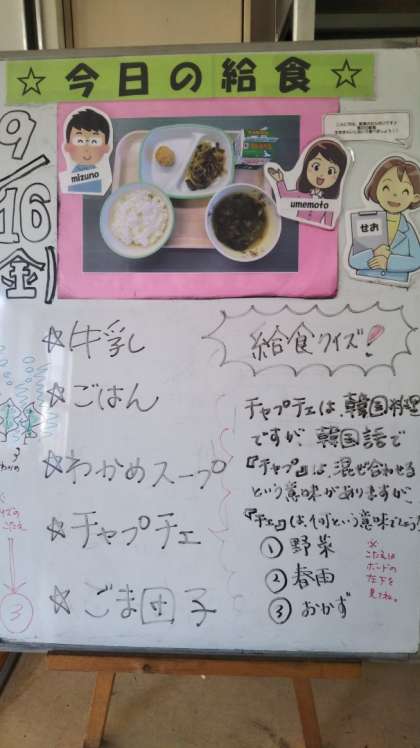 ☆今日の給食☆
9/16(金)
mizuno
umemoto
せお
☆牛乳
☆ごはん
☆わかめスープ
☆チャプチェ
☆ごま団子
給食クイズ!
チャプチェは、韓国料理
ですが、韓国語で
『チャプ』は、混ぜ合わせる
という意味がありますが
『チェ』は、何という意味でしょう
① 野菜
② 春雨
③ おかず
※
こたえは
ボードの
左下を
見てね。
※
クイズの
こたえ
↓
③